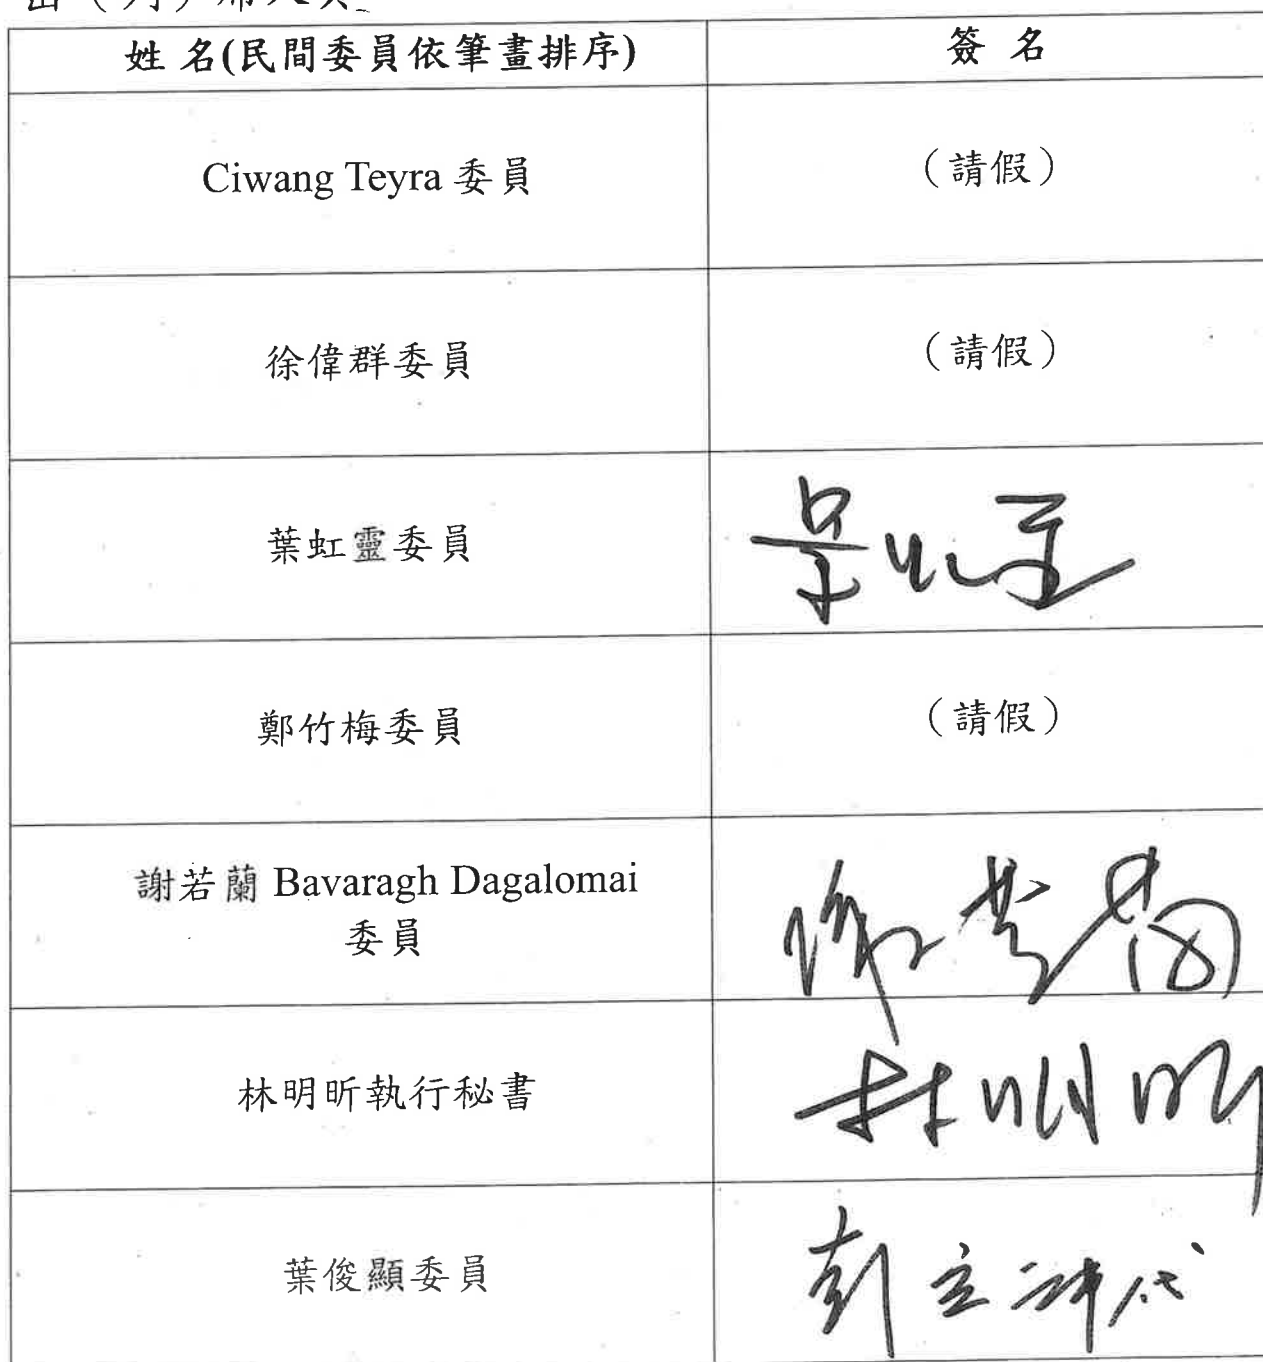 出（列）席人員
姓 名(民間委員依筆畫排序)
簽 名
Ciwang Teyra 委員
（請假）
徐偉群委員
（請假）
葉虹靈委員
葉虹靈
鄭竹梅委員
（請假）
謝若蘭 Bavaragh Dagalomai
委員
謝若蘭
林明昕執行秘書
林明昕
葉俊顯委員
代